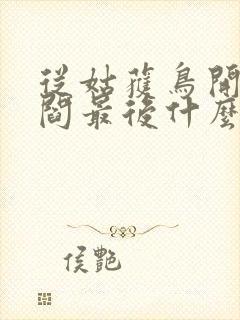 從姑獲鳥開
閻最後什麼
侯艷